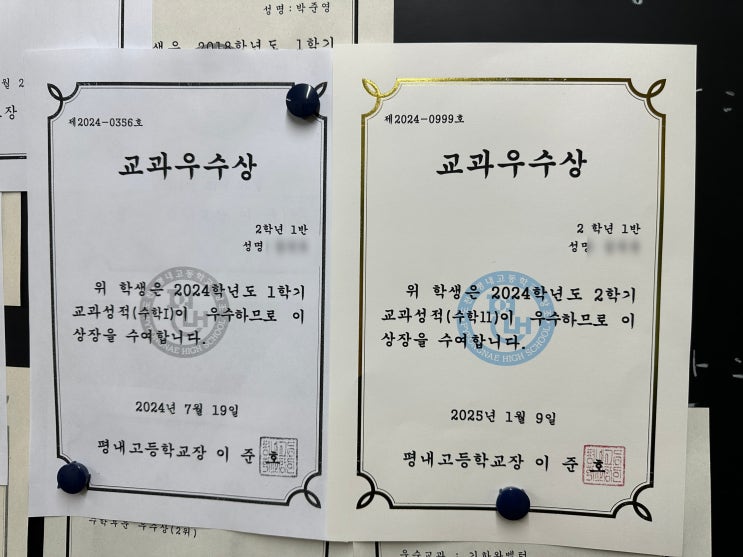 성명:박준영
생은 2018학년도 1학기
월 2
장
제2024-0356호
교과우수상
2학년 1반
성명
위 학생은 2024학년도 1학기
교과성적(수학I)이 우수하므로 이
상장을 수여합니다.
2024년 7월 19일
평내고등학교장 이 준 호
제2024-0999호
교과우수상
2 학년 1반
성명
위 학생은 2024학년도 2학기
교과성적(수학11)이 우수하므로 이
상장을 수여합니다.
2025년 1월 9일
평내고등학교장 이 준 호
평내고등학교
PYUNGNAE HIGH SCHOOL
우수상(2위)
우수교과 : 기하와벡터